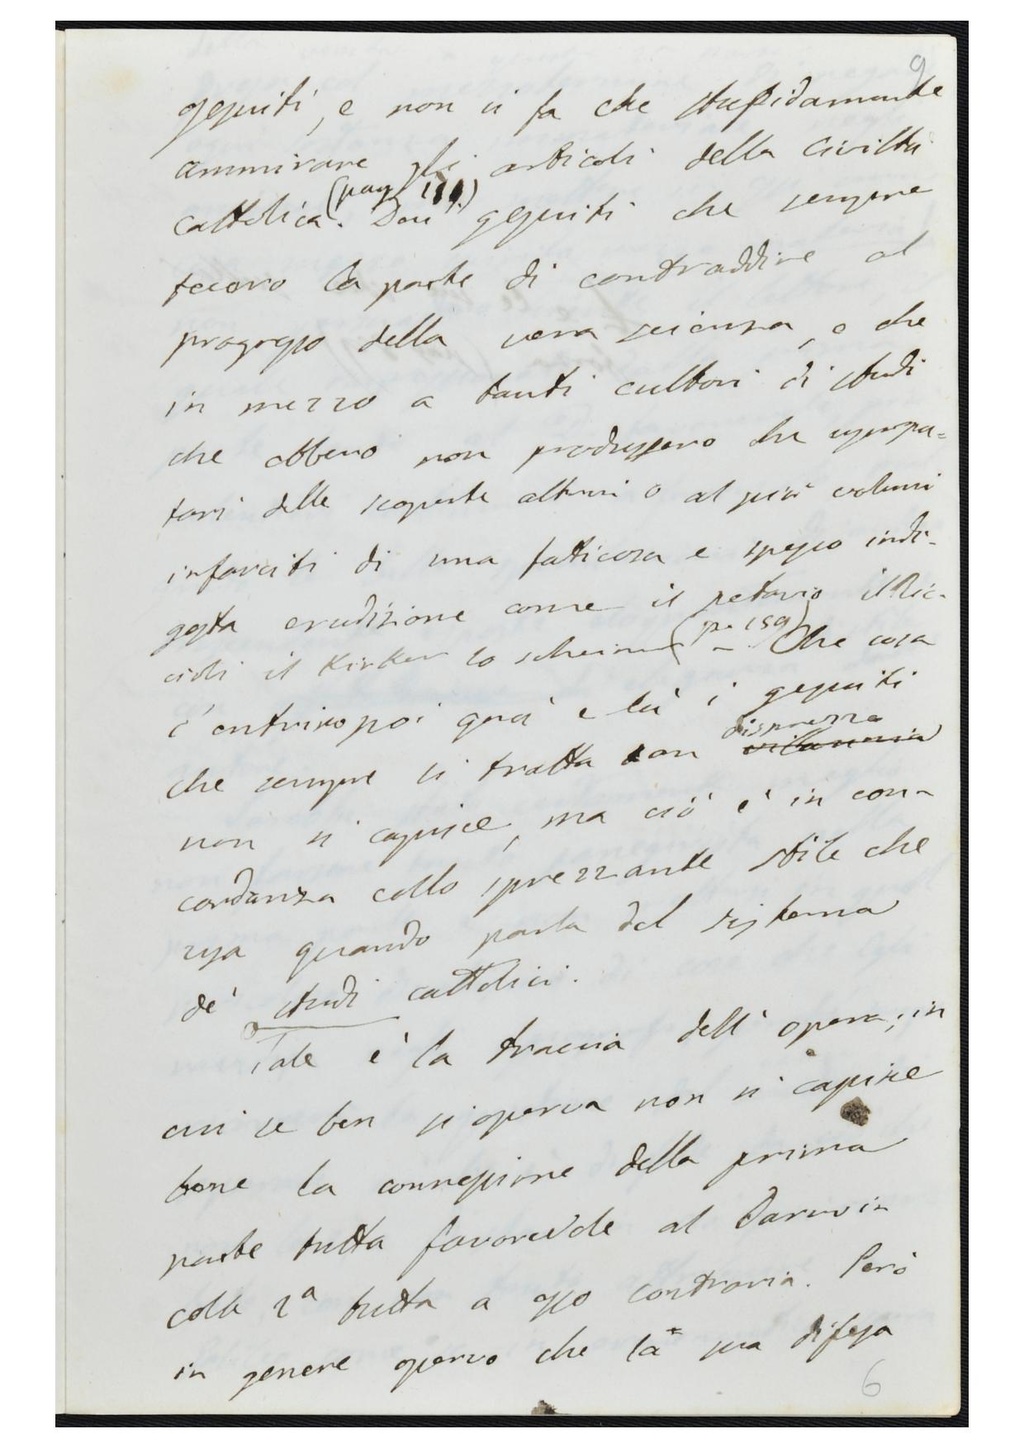 9
gesuiti, e non si fa che stupidamente
ammirare gli articoli della Civiltà
cattolica. (pag 151) Dai gesuiti che sempre
fecero la parte di contraddire al
progresso della vera scienza, e che
in mezzo a tanti cultori di studi
che ebbero non produssero che usurpa=
tori delle scoperte altrui o al più volumi
infarciti di una faticosa e spesso indi-
gesta erudizione come il petavio il Ric-
cioli il Kirker lo scheiner (p. 159) – Che cosa
c'entrino poi quà e là i gesuiti
che sempre si tratta con disprezzo
non si capisce, ma ciò è in con-
cordanza collo sprezzante stile che
usa quando parla del sistema
de' studi cattolici.
Tale è la traccia dell' opera; in
cui se ben si osserva non si capisce
bene la connessione della prima
parte tutta favorevole al Darwin
colla 2a tutta a esso contraria. Però
in genere osservo che la sua difesa
6